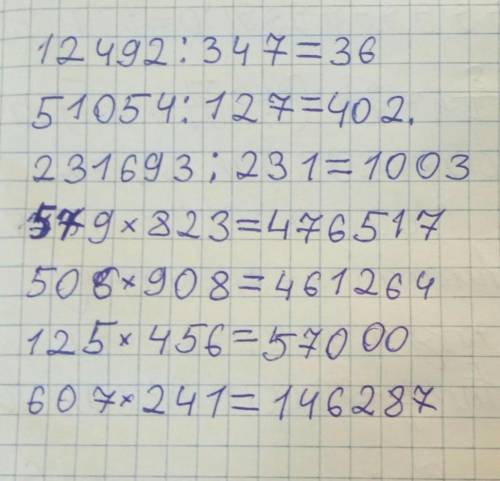 12492:347=36
51054:127=402.
231693:231=1003
579×823=476517
508×908=461264
125×456=57000
607×241=146287